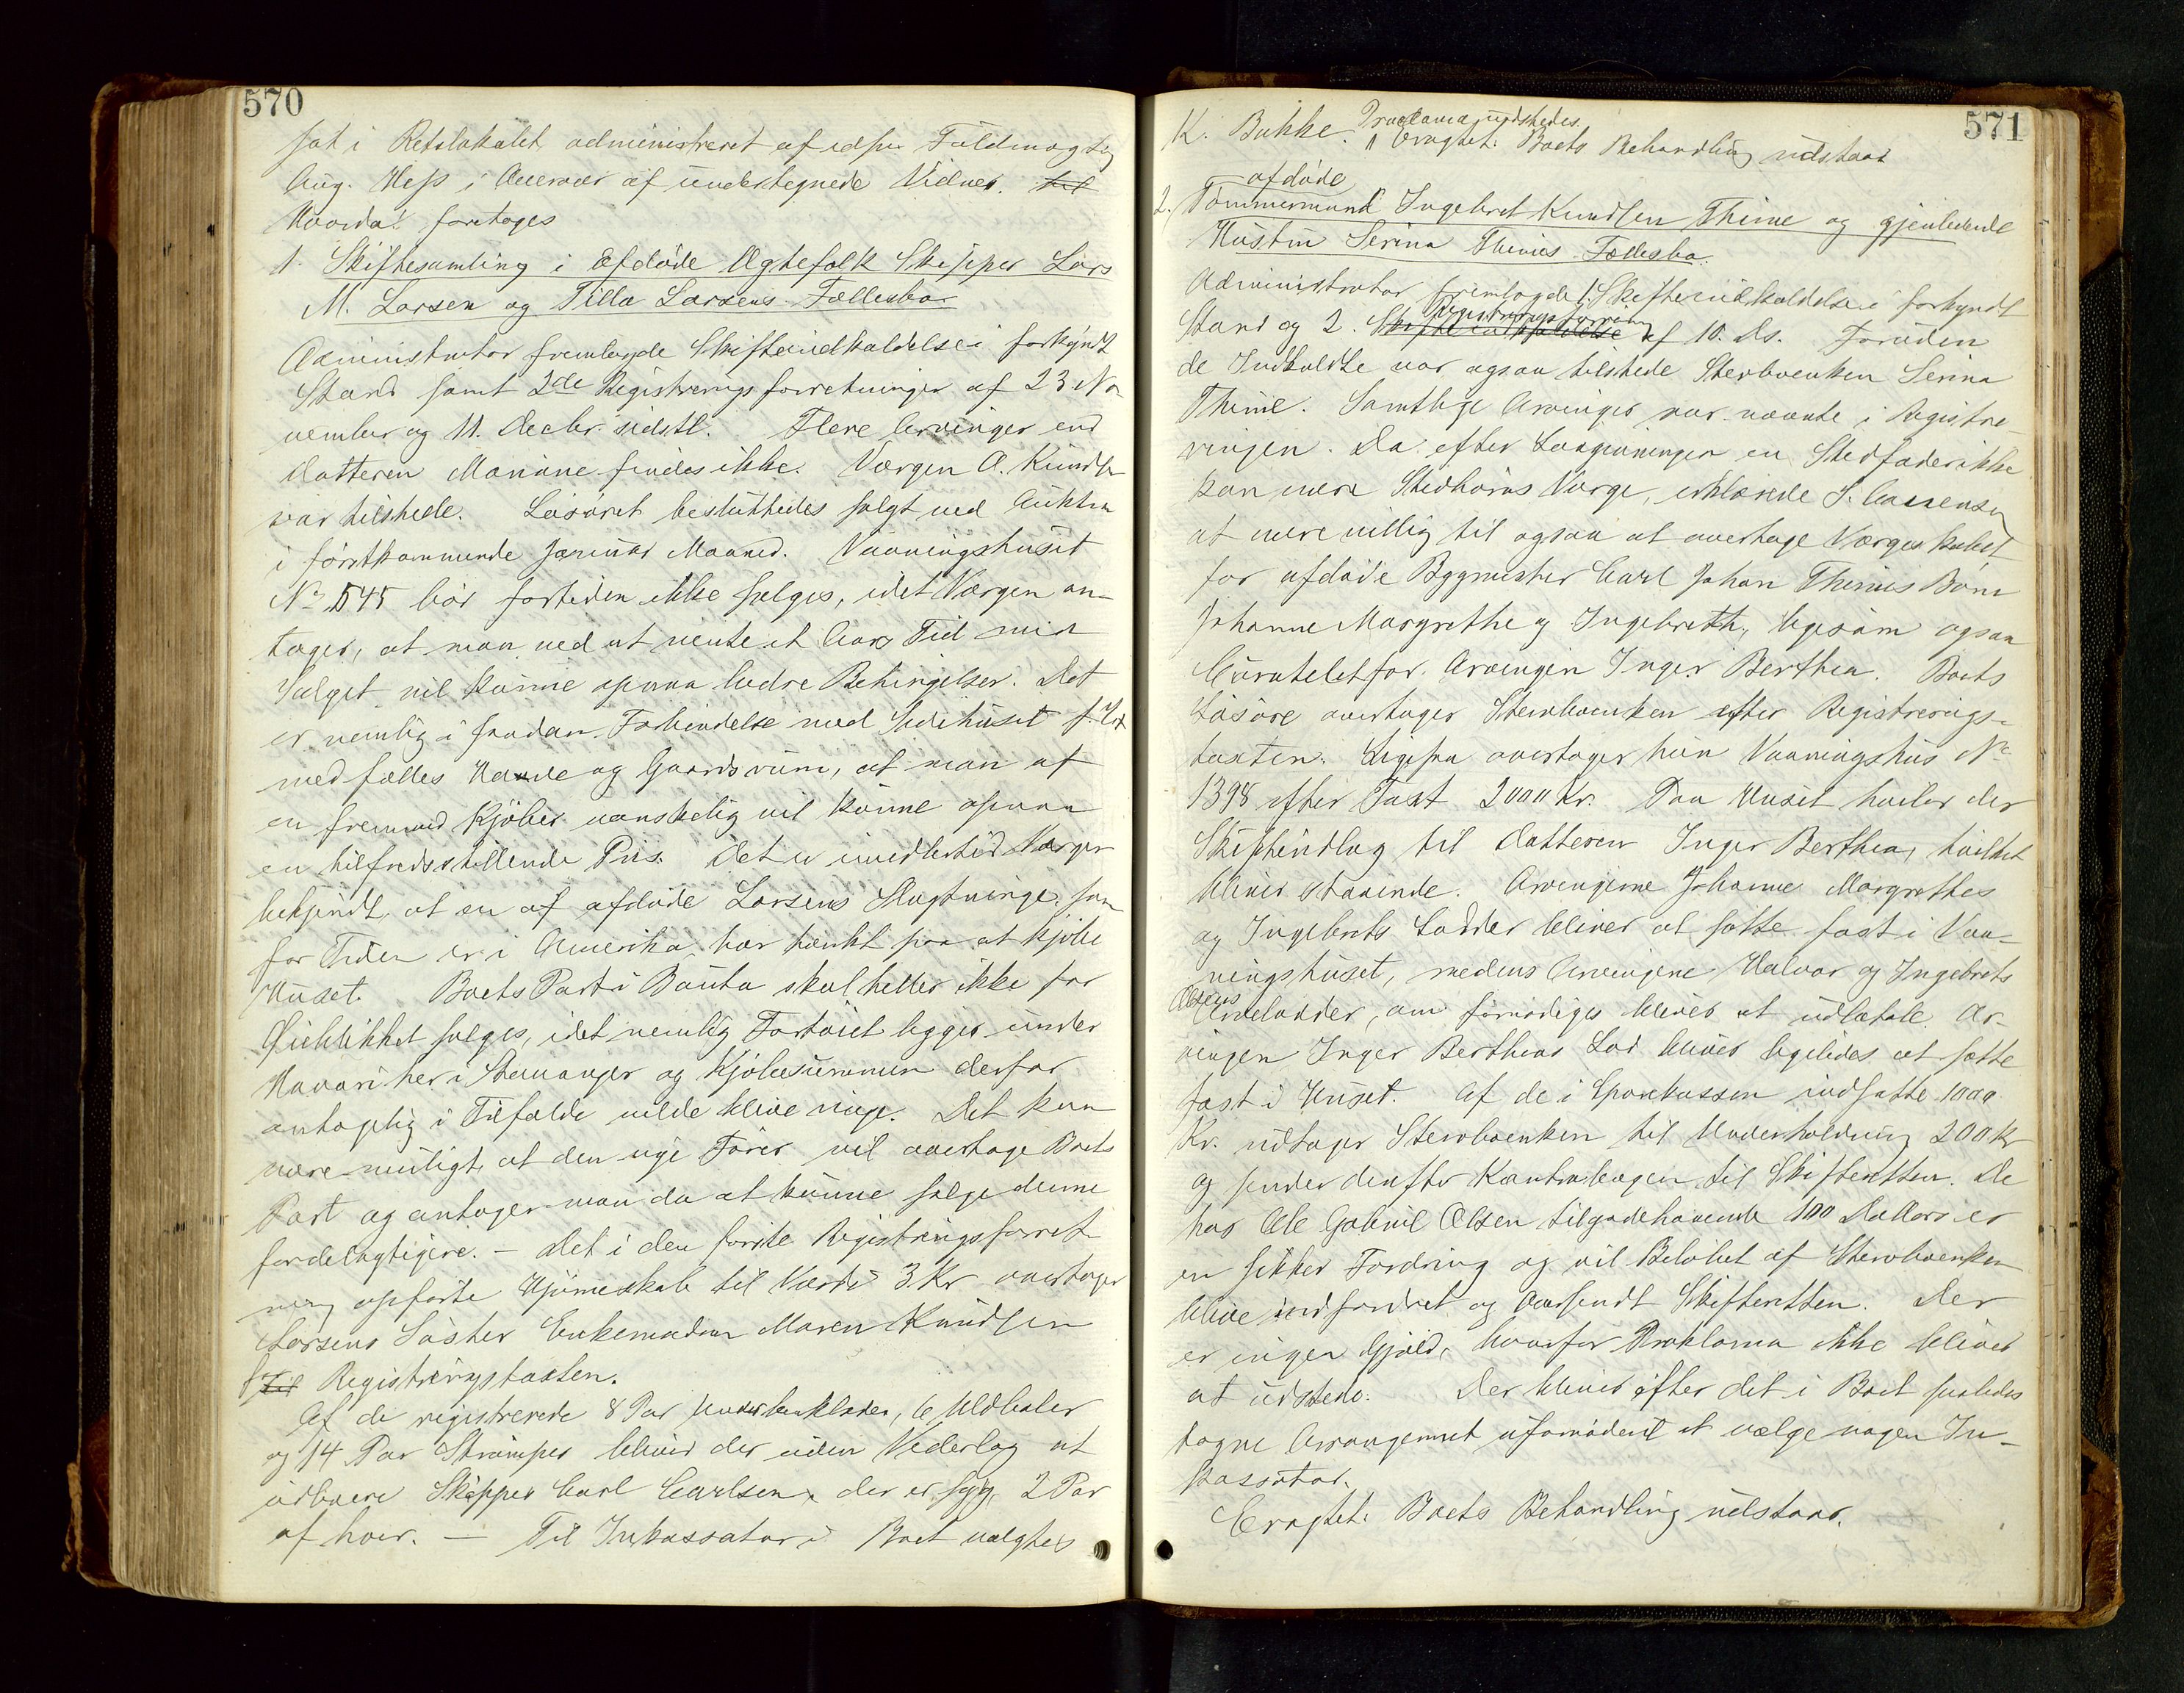 570
sat i Retslokalet administreret af edsv. Fuldmægtig
Aug. Hess i Overvær af undertegnede Vidner. til
Hvorda! foretoges
1. Skiftesamling i afdøde Ægtefolk Skipper Lars
M. Larsen og Tilla Larsens Fællesbo
Administrator fremlagde Skifteindkaldelse i forkyndt
Stand samt 2de Registreringsforretninger af 23 No-
vember og 11. Decbr. sidstl. Flere Arvinger end
Datteren Mariane findes ikke. Værgen A. Knudsen
var tilstede. Løsøret besluttedes solgt ved Auktion
i førstkommende Januar Maaned. Vaaningshuset
No 545 bør fortiden ikke sælges, idet Værgen an-
tager, at man ved at vente et Aars Tid med
Salget vil kunne opnaa bedre Betingelser. Det
er nemlig i saadan Forbindelse med Sidehuset
med fælles Have og Gaardsrum, at man af
en fremmed Kjøber vanskelig vil kunne opnaa
en tilfredsstillende Pris. Det er imidlertid Værgen
bekjendt, at en af afdøde Larsens Slægtninge, som
for Tiden er i Amerika, har tænkt paa at kjøbe
Huset. Boets Part i Bauta skal heller ikke for
Øieblikket sælges, idet nemlig Fartøiet ligger under
Havari her i Stavanger og Kjøbesummen derfor
antagelig i Tilfælde vilde blive ringe. Det kan
være muligt, at den nye Fører vil overtage Boets
Part og antager man da at kunne sælge denne
fordelagtigere. – Det i den første Registreringsforret-
ning opførte Hjørneskab til Værdi 3 Kr overtager
Larsens Søster Enkemadam Maren Knudsen
til Registreringstaxten.
Af de registrerede 8 Par Underbenklæder, 6 Uldboler
og 14 Par Strømper bliver der uden Vederlag at
udlevere Skipper Carl Carlsen, der er syg, 2 Par
af hver. — Til Inkassator i Boet valgtes
571
K. Bakke. Proclama udstedes.
Eragtet: Boets Behandling udstaar
afdøde
2. Tømmermand Ingebret Knudsen Thime og gjenlevende
Hustru Serina Thimes Fællesbo.
Administrator fremlagde 1. Skifteindkaldelse i forkyndt
Registreringsforretning
Stand og 2. Skifteindkaldelse af 10. ds. Foruden
de Indkaldte var ogsaa tilstede Sterboenken Serina
Thime. Samtlige Arvinger var nævnte i Registre-
ringen. Da efter Lovgivningen en Stedfader ikke
kan være Stedbørns Værge, erklærede S.
at være villig til ogsaa at overtage Værgeskabet
for afdøde Bygmester Carl Johan Thimes Børn
Johanne Margrethe og Ingebreth, ligesom ogsaa
Curatelet for Arvingen Inger Berthea. Boets
Løsøre overtager Sterboenken efter Registrerings-
taxten. Ligesaa overtager hun Vaaningshus No
1398 efter Taxt 2000 Kr. Paa Huset hviler der
Skifteudlæg til Datteren Inger Berthea, hvilket
bliver staaende. Arvingerne Johanne Margrethes
og Ingebrets Lodder bliver at sætte fast i Vaa-
ningshuset, medens Arvingerne Halvor og Ingebrets
Olsens
Arvelodder, om fornødiges bliver at udbetale. Ar-
vingen Inger Bertheas Lod bliver ligeledes at sætte
fast i Huset. Af de i Sparekassen indsatte 1000
Kr. udtager Sterboenken til Underholdning 200 Kr
og sender derefter Kontrabogen til Skifteretten. De
hos Ole Gabriel Olsen tilgodehavende 100 Dollars er
en sikker Fordring og vil Beløbet af Sterboenken
blive indfordret og oversendt Skifteretten. Der
er ingen Gjæld, hvorfor Proklama ikke bliver
at udstede. Der bliver efter det i Boet saaledes
tagne Arrangement ufornødent at vælge nogen In-
kassator.
Eragtet: Boets Behandling udstaar.